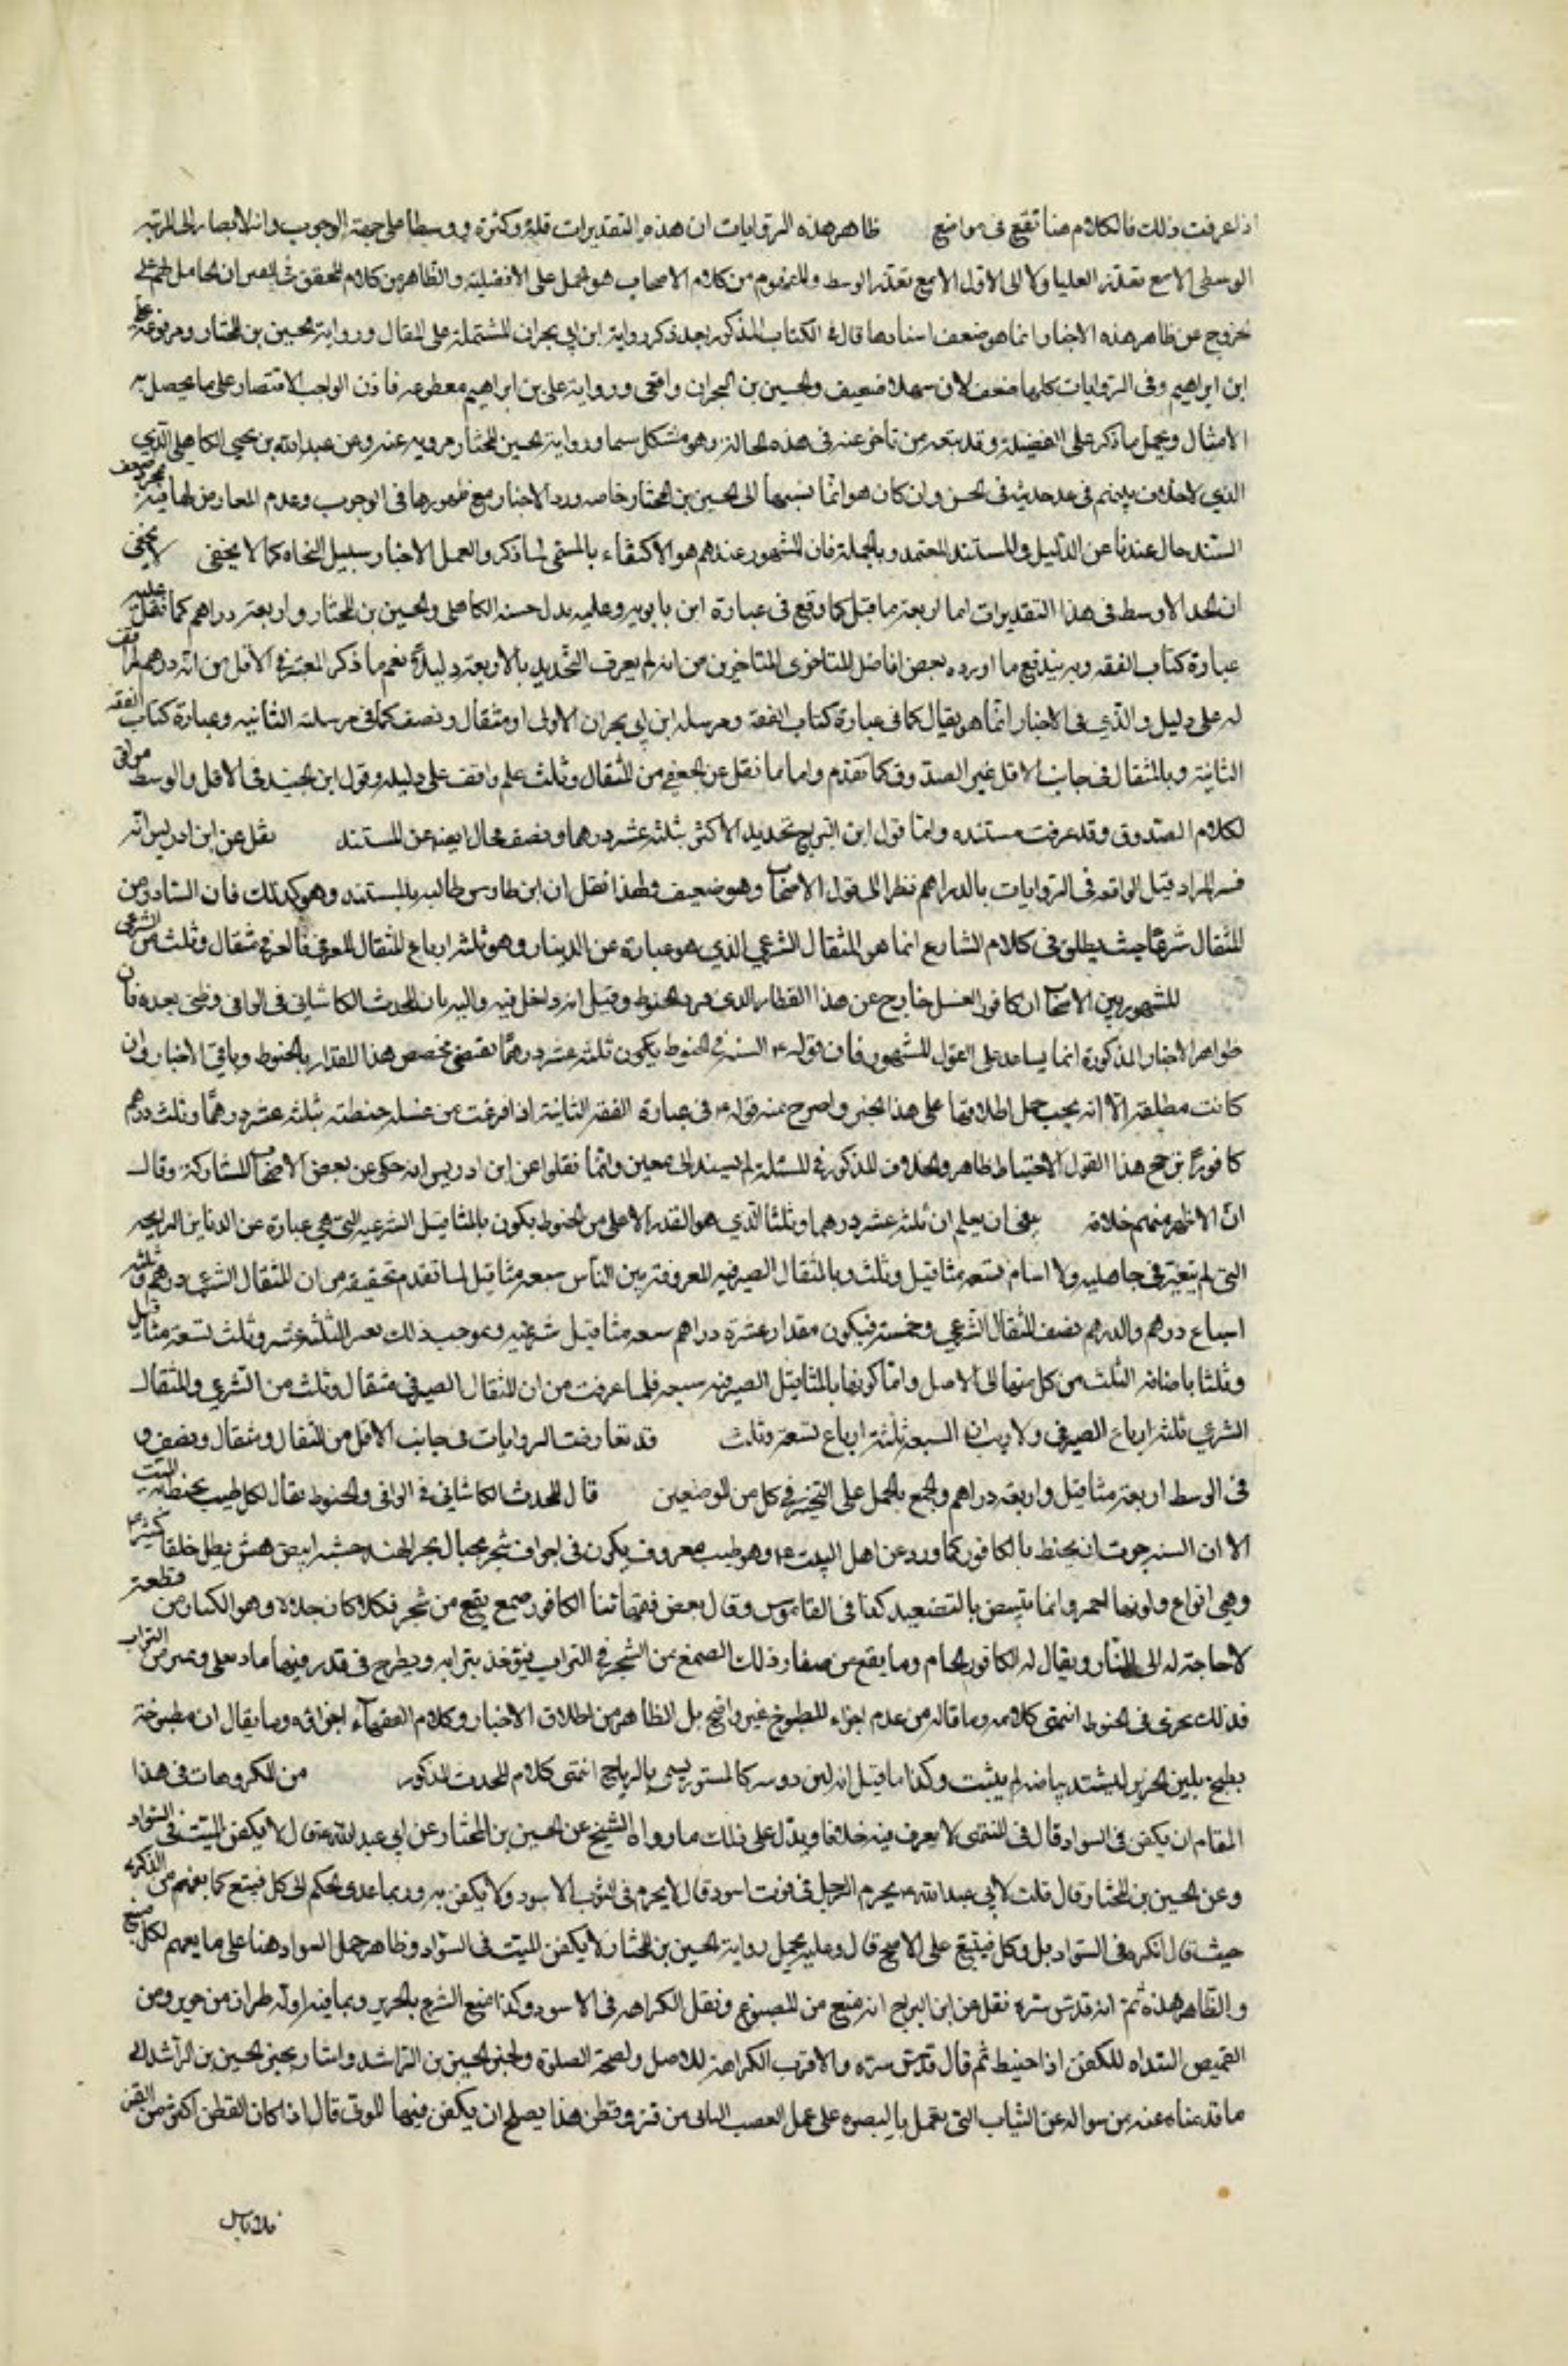 اذا عرفت ذلك فالكلام هنا تقع فى مواضع ظاهر هذه الروايات ان هذه التقديرات قلة وكثرة ووسطا على جهة الوجوب وانه لا يصار الى المرتبة
الوسطى الا مع تعذر العليا ولا الى الاقل الا مع تعذر الوسط والمفهوم من كلام الاصحاب هو الحمل على الافضلية والظاهر من كلام المحقق فى المعتبر ان الحامل لهم على
الخروج عن ظاهر هذه الاخبار انما هو ضعف اسنادها قال فى الكتاب المذكور بعد ذكر رواية ابن ابي نجران المشتملة على المثقال ورواية الحسين بن المختار ومرفوعة على
ابن ابراهيم وفى الروايات كلها ضعف لان سهلا ضعيف والحسين بن واقفى ورواية على بن ابراهيم مقطوعه فاذن الواجب الاقتصار على ما يحصل به
الامتثال ويحمل ما ذكر على الفضيلة وقد تبعه من تاخر عنه فى هذه الحالة وهو مشكل سيما ورواية الحسين المختار مرويه عنه وعن عبد الله بن يحيى الكاهلى الذي
الذي لا خلاف بينهم فى عد حديثه فى الحسن وان كان هو انما نسبها الى الحسين بن المختار خاصه ورد الاخبار مع ظهورها فى الوجوب وعدم المعارض لها فيه بمجرد ضعف
السند خال عندنا عن الدليل والمستند المعتمد وبالجملة فان المشهور عندهم هو الاكتفاء بالمسمى لما ذكر والعمل الاخبار سبيل النجاه كما لا يخفى لا يخفى
ان الحد الاوسط فى هذا التقديرات اما اربعة مثاقيل كما وقع فى عبارة ابن بابويه وعليه يدل حسنه الكاهلى والحسين بن المختار واربعة دراهم كما نقل عليه
عبارة كتاب الفقه وبه يندفع ما اورده بعض افاضل المتاخرى المتاخرين من انه لم يعرف التحديد بالاربعة دليلا نعم ما ذكر المعتبر فى الاقل من انه درهم لم اقف
له على دليل والذي فى الاخبار انما هو مثقال كما فى عبارة كتاب الفقه ومرسله ابن ابي نجران الاولى او مثقال ونصف كما فى مرسلته الثانيه وعبارة كتاب الفقه
الثانية وبالمثقال فى جانب الاقل عبر الصدوق كما تقدم واما ما نقل عن الجعفى من المثقال وثلث فلم واقف على دليله وقول ابن الجنيد فى الاقل والوسط موافق
لكلام الصدوق وقد عرفت مستنده واما قول ابن البراج تحديد الاكثر بثلثة عشر درهما ونصف خال ايضا عن المستند نقل عن ابن ادريس انه
فسر المراد مثقيل الواقعه فى الروايات بالدراهم نظرا الى قول الاصحاب وهو ضعيف ولهذا نقل ان ابن طاوس طالبه بالمستند وهو كذلك فان المتبادر من
المثقال شرعا حيث يطلق فى كلام الشارع انما هو المثقال الشرعي الذي هو عبارة عن الدينار وهو ثلثة ارباع المثقال المعرفى فالعرفي مثقال وثلث من الشرعى
المشهور بين الاصحاب ان كافور الغسل خارج عن هذا القطار الذى فى الحنوط وقيل انه داخل فيه واليه مال المحدث الكاشانى فى الوافى وظني بعده فان
ظواهر الاخبار المذكورة انما يساعد على القول المشهور فان قوله ع السنه فى الحنوط يكون ثلثه عشر درهما يقتضى تخصص هذا المقدار بالحنوط وباقى الاخبار وان
كانت مطلقة الا انه يجب حمل اطلاقها على هذا الخبر واصرح منه قوله ع فى عبارة الفقه الثانية اذا فرغت من غسله حنطته بثلثة عشر درهما وثلث درهم
كافورا ثم حج هذا القول الاحتياط ظاهر والخلاف المذكور فى المسئلة لم يسند الى معين وانما نقلوا عن ابن ادريس انه حكى عن بعض الاصحاب المشاركة وقال
ان الاظهر منهم خلافه ينبغى ان يعلم ان ثلثة عشر درهما وثلثا الذي هو القدر الاعلى من الحنوط يكون بالمثاقيل الشرعيه التى هي عبارة عن الدنانير الرايجه
التى لم يتغير فى جاهلية ولا اسلام تسعه مثاقيل وثلث وبالمثقال الصيرفيه المعروفة بين الناس سبعه مثاقيل لما تقدم تحقيقه من ان المثقال الشرعى درهم وثلثة
اسباع درهم والدرهم نصف المثقال الشرعي وخمسه فيكون مقدار عشرة دراهم سبعه مثاقيل شرعيه وبموجب ذلك تصير الثلثة عشر وثلث تسعة مثاقيل
وثلثا باضافه الثلث من كل منها الى الاصل واما كونها بالمثاقيل الصيرفيه سبعه فلما عرفت من ان المثقال الصيرفى مثقال وثلث من الشرعي والمثقال
الشرعي ثلثة ارباع الصيرفى ولا ريب ان السبعه ثلثة ارباع تسعة وثلث قد تعارضت الروايات فى جانب الاقل من المثقال ومثقال ونصف و
فى الوسط اربعة مثاقيل واربعة دراهم والجمع بالحمل على التخير فى كل من الموضعين قال المحدث الكاشانى فى الوافى والحنوط يقال لكل طيب يحنط به الميت
الا ان السنه جرت ان يحنط بالكافور كما ورد عن اهل البيت ع وهو طيب معروف يكون فى اجواف شجر بجبال بحر الهند خشبه ابيض هش يظل خلقا كثيرا
وهي انواع ولونها احمر وانما يتبيض بالتصعيد كذا فى القاموس وقال بعض فقهائنا الكافور صمغ يقع من شجر فكلا كان جلالا وهو الكبار من قطعة
لا حاجة له الى النار ويقال له الكافور الخام وما يقع من صغار ذلك الصمغ من الشجر فى التراب فيؤخذ بترابه ويطرح فى قدر فيها ماء ويغلى ويميز من التراب
فذلك لا يجزى فى الحنوط انتهى كلامه وما قاله من عدم اجزاء المطبوخ غير واضح بل الظاهر من اطلاق الاخبار وكلام الفقهاء اجزائه وما يقال ان مطبوخة
يطبخ بلبن الخنزير ليشتد بياضه لم يثبت وكذا ما قيل انه لبن دويبه كالسنور يسمى بالرباح انتهى كلام المحدث المذكور من المكروهات فى هذا
المقام ان يكفن فى السواد قال فى المنتهى لا يعرف فيه خلافا ويدل على ذلك ما رواه الشيخ عن الحسين بن المختار عن ابي عبد الله ع قال لا يكفن الميت فى السواد
وعن الحسين بن المختار قال قلت لابي عبد الله ع يحرم الرجل فى ثوب اسود قال لا يحرم فى الثوب الاسود ولا يكفن به وربما عدى الحكم الى كل صبغ كما يفهم من الذكرى
حيث قال تكره فى السواد بل وكل صبغ على الاصح قال وعليه يحمل رواية الحسين بن المختار لا يكفن الميت فى السواد وظاهر حمل السواد هنا على ما يعم لكل صبغ
والظاهر هذه ثم انه قدس سره نقل عن ابن البراج انه منع من المصبوغ ونقل الكراهه فى الاسود وكذا منع الشرع بالحرير وبما فيه او له طراز من حرير ومن
القميص المبتداه للكفن اذا خيط ثم قال قدس سره والاقرب الكراهة للاصل ولصحة الصلوة ولخبر الحسين بن الراشد واشار بخبر الحسين بن الراشد الى
ما قدمناه عنه من سواله عن الثياب التى تعمل بالبصره على عمل العصب اليمانى من قز وقطن هذا يصلح ان يكفن فيها الموتى قال اذا كان القطن اكثر من القز
فلا باس